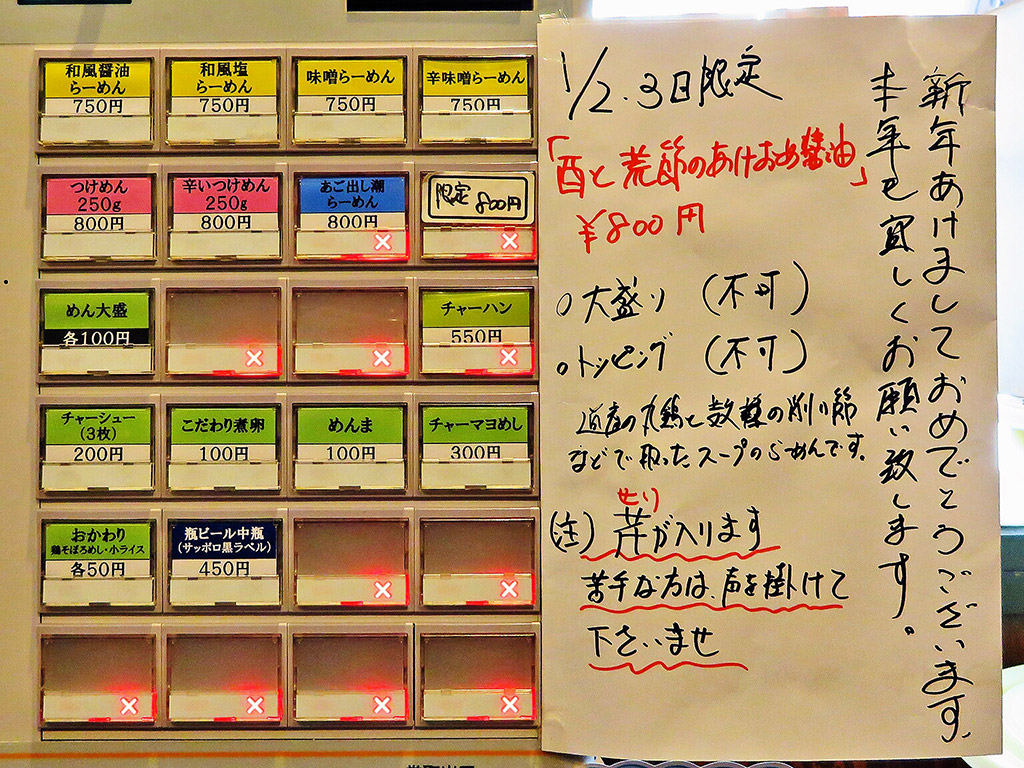 和風醤油
らーめん
750円
和風塩
らーめん
750円
味噌らーめん
750円
辛味噌らーめん
750円
つけめん
250g
800円
辛いつけめん
250g
800円
あご出し潮
らーめん
800円
限定 800円
めん大盛
各100円
チャーハン
550円
チャーシュー
(3枚)
200円
こだわり煮卵
100円
めんま
100円
チャーマヨめし
300円
おかわり
鶏そぼろめし・小ライス
各50円
瓶ビール中瓶
(サッポロ黒ラベル)
450円
新年あけましておめでとうございます。
本年も宜しくお願い致します。
1/2.3日限定
「酉と荒節のあけおめ醤油」
¥800円
○大盛り (不可)
○トッピング (不可)
道産の丸鶏と数種の削り節
などで取ったスープのらーめんです。
せり
(注) 芹が入ります
苦手な方は、声を掛けて
下さいませ